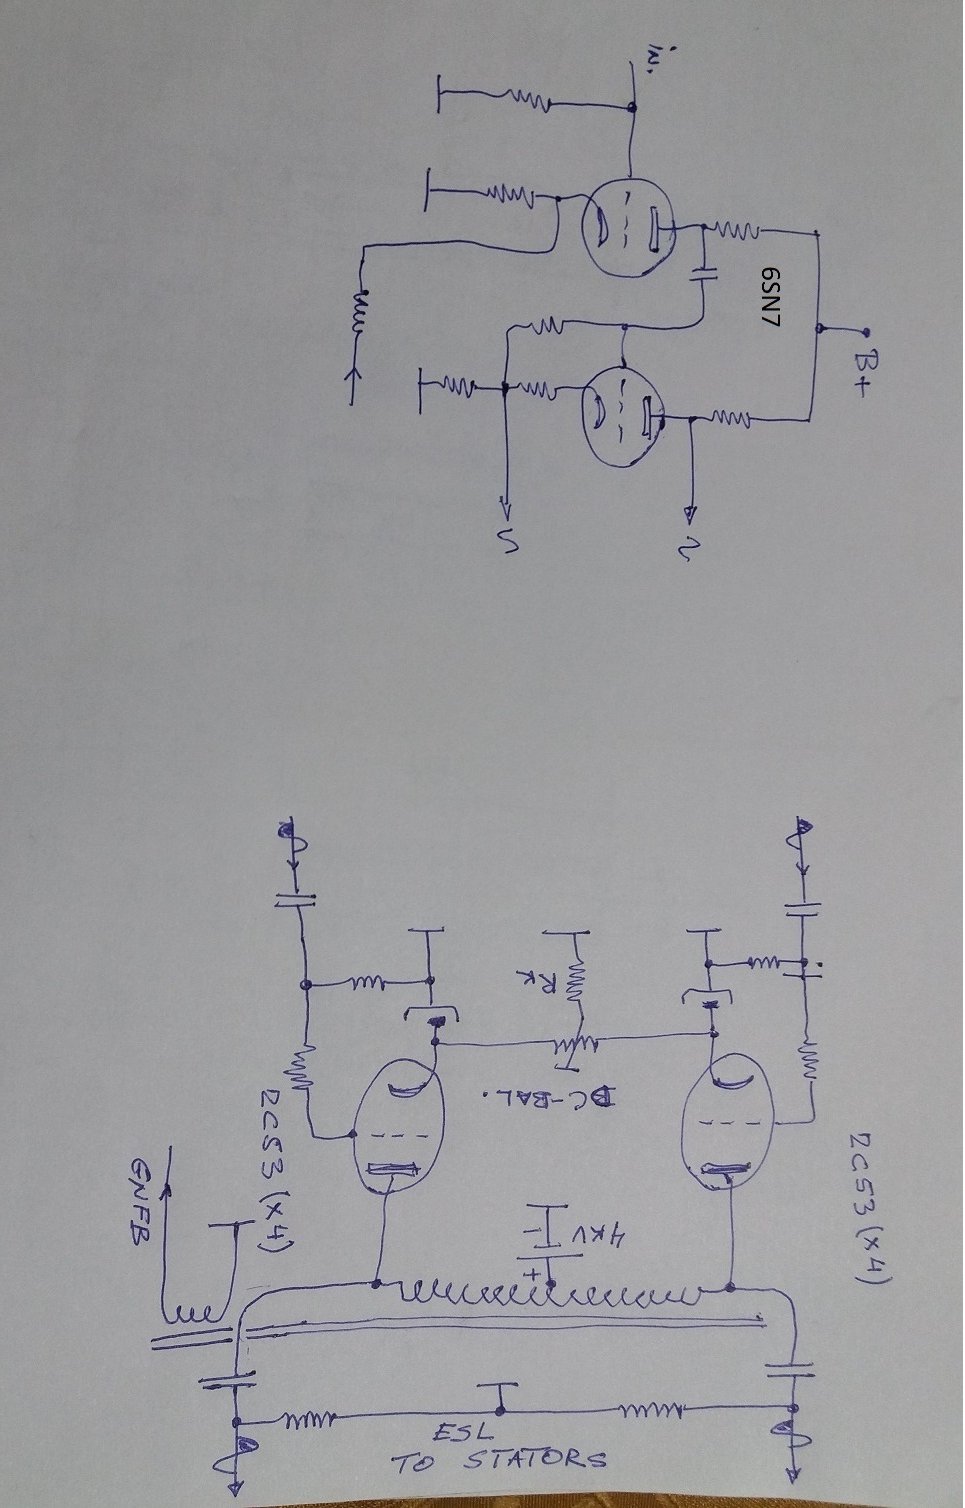 in.
6SN7
B+
RK
DC-BAL.
2C53 (x4)
2C53 (x4)
GNFB
4KV
-
+
ESL
TO STATORS